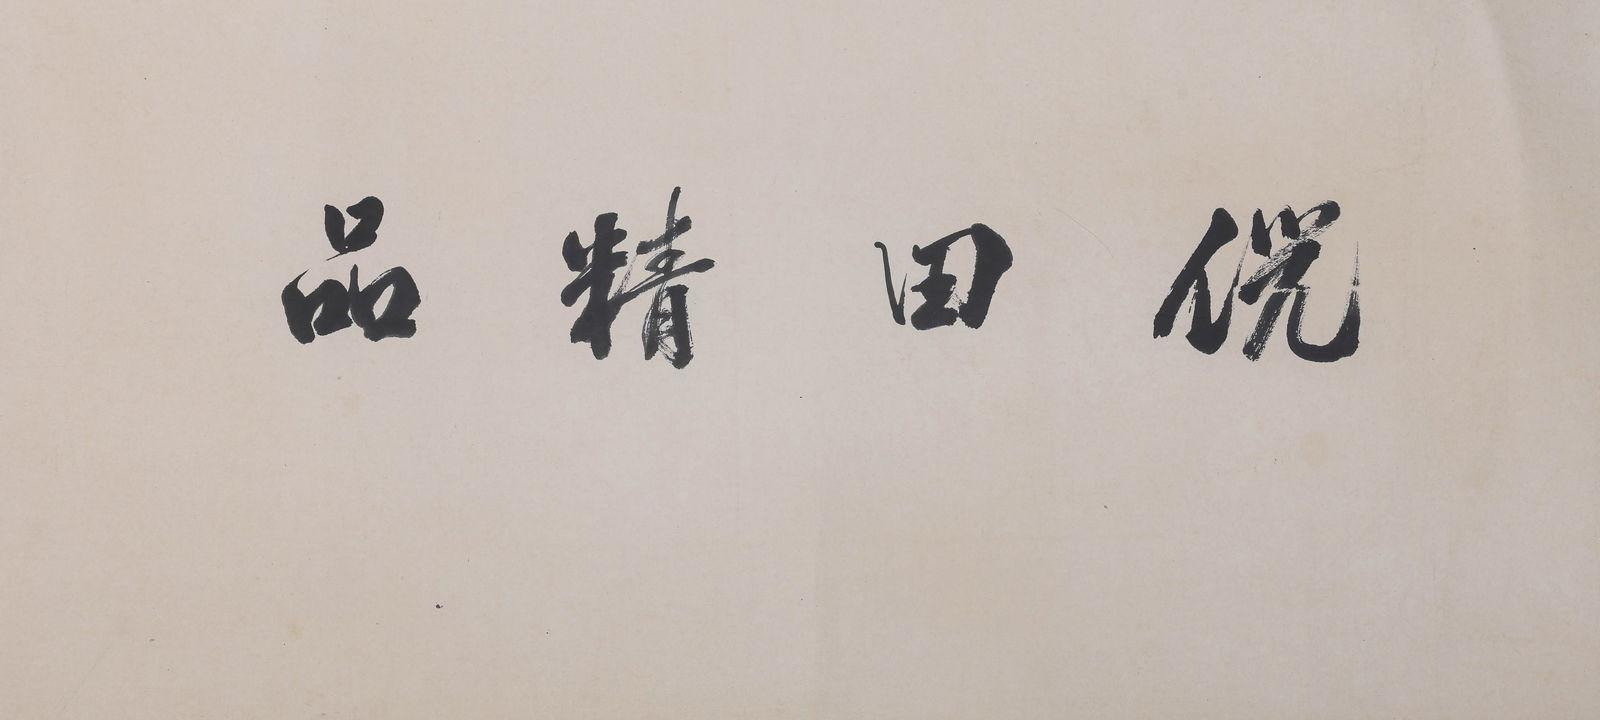 倪田精品